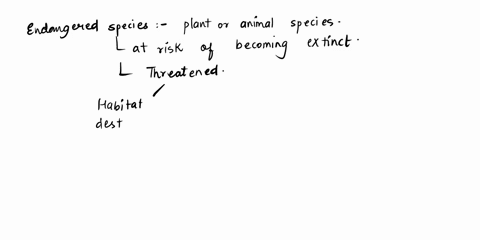 Endangered species :- plant or animal species.
at risk of becoming extinct.
Threatened.
Habitat
dest